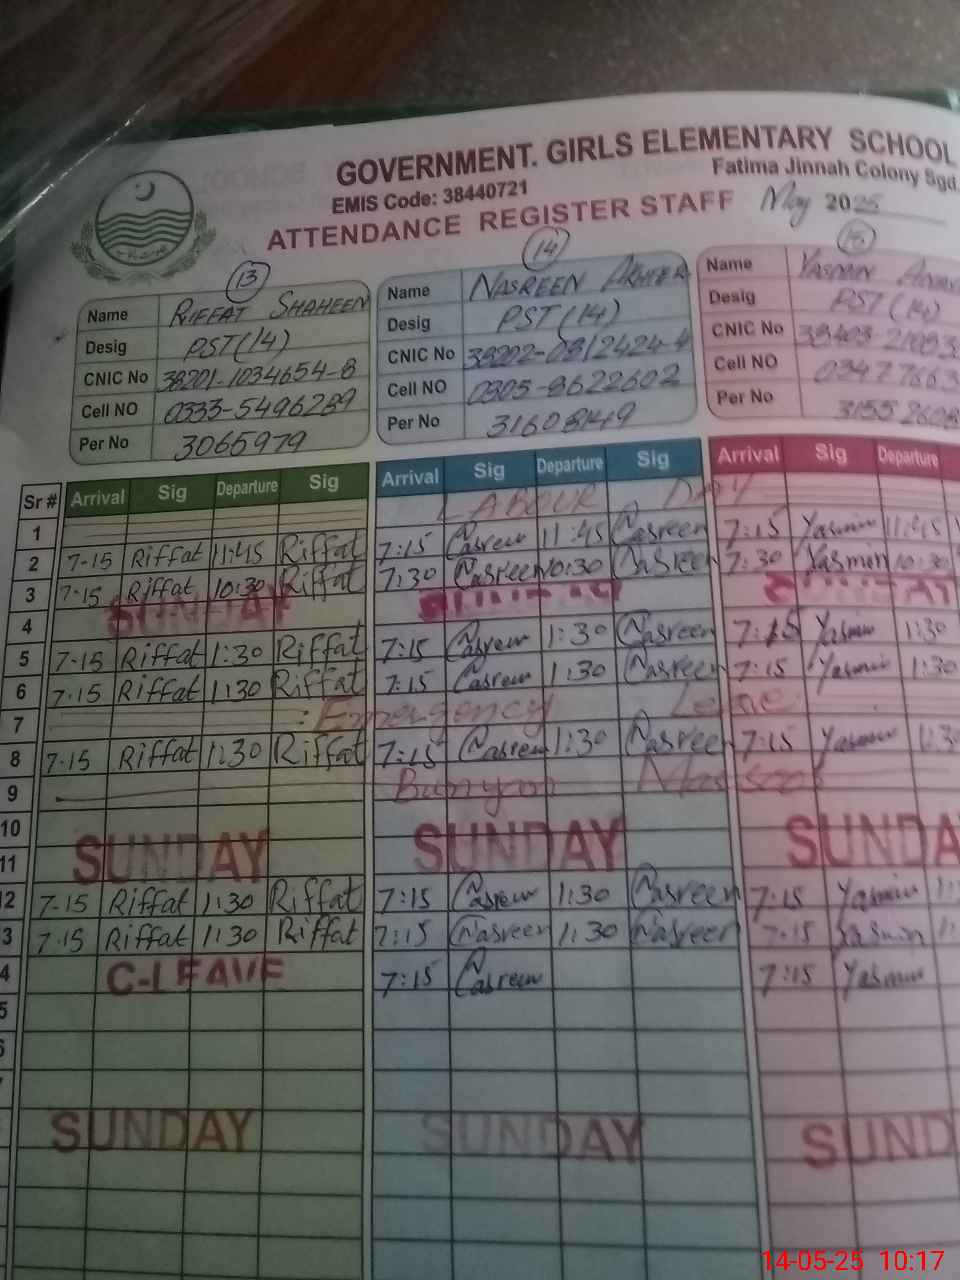 GOVERNMENT. GIRLS ELEMENTARY SCHOOL
Fatima Jinnah Colony Sgd.
EMIS Code: 38440721
ATTENDANCE REGISTER STAFF May 2025
13 14 15
Name RIFFAT SHAHEEN
Desig PST(14)
CNIC No 38201-1034654-8
Cell NO 0333-5496289
Per No 3065979
Name NASREEN AKHTER
Desig PST(14)
CNIC No
Cell NO 0305-8622602
Per No
Name YASMIN
Desig PST(14)
CNIC No
Cell NO
Per No
Sr # Arrival Sig Departure Sig Arrival Sig Departure Sig Arrival Sig Departure
1 LABOUR DAY
2 7-15 Riffat 11:45 Riffat 7:15 Nasreen 11:45 Nasreen 7:15 Yasmin 11:45
3 7-15 Riffat 10:30 Riffat 7:30 Nasreen 10:30 Nasreen 7:30 Yasmin 10:30
4 SUNDAY SUNDAY SUNDAY
5 7-15 Riffat 1:30 Riffat 7:15 Nasreen 1:30 Nasreen 7:15 Yasmin 1:30
6 7-15 Riffat 1:30 Riffat 7:15 Nasreen 1:30 Nasreen 7:15 Yasmin 1:30
7 Emergency
8 7-15 Riffat 1:30 Riffat 7:15 Nasreen 1:30 Nasreen 7:15 Yasmin 1:30
9 Bunyan
10
11 SUNDAY SUNDAY SUNDA
2 7-15 Riffat 1:30 Riffat 7:15 Nasreen 1:30 Nasreen 7:15 Yasmin
3 7-15 Riffat 1:30 Riffat 7:15 Nasreen 1:30 Nasreen 7:15 Yasmin
4 C-LEAVE 7:15 Nasreen 7:15 Yasmin
5
6
SUNDAY SUNDAY SUND
14-05-25 10:17